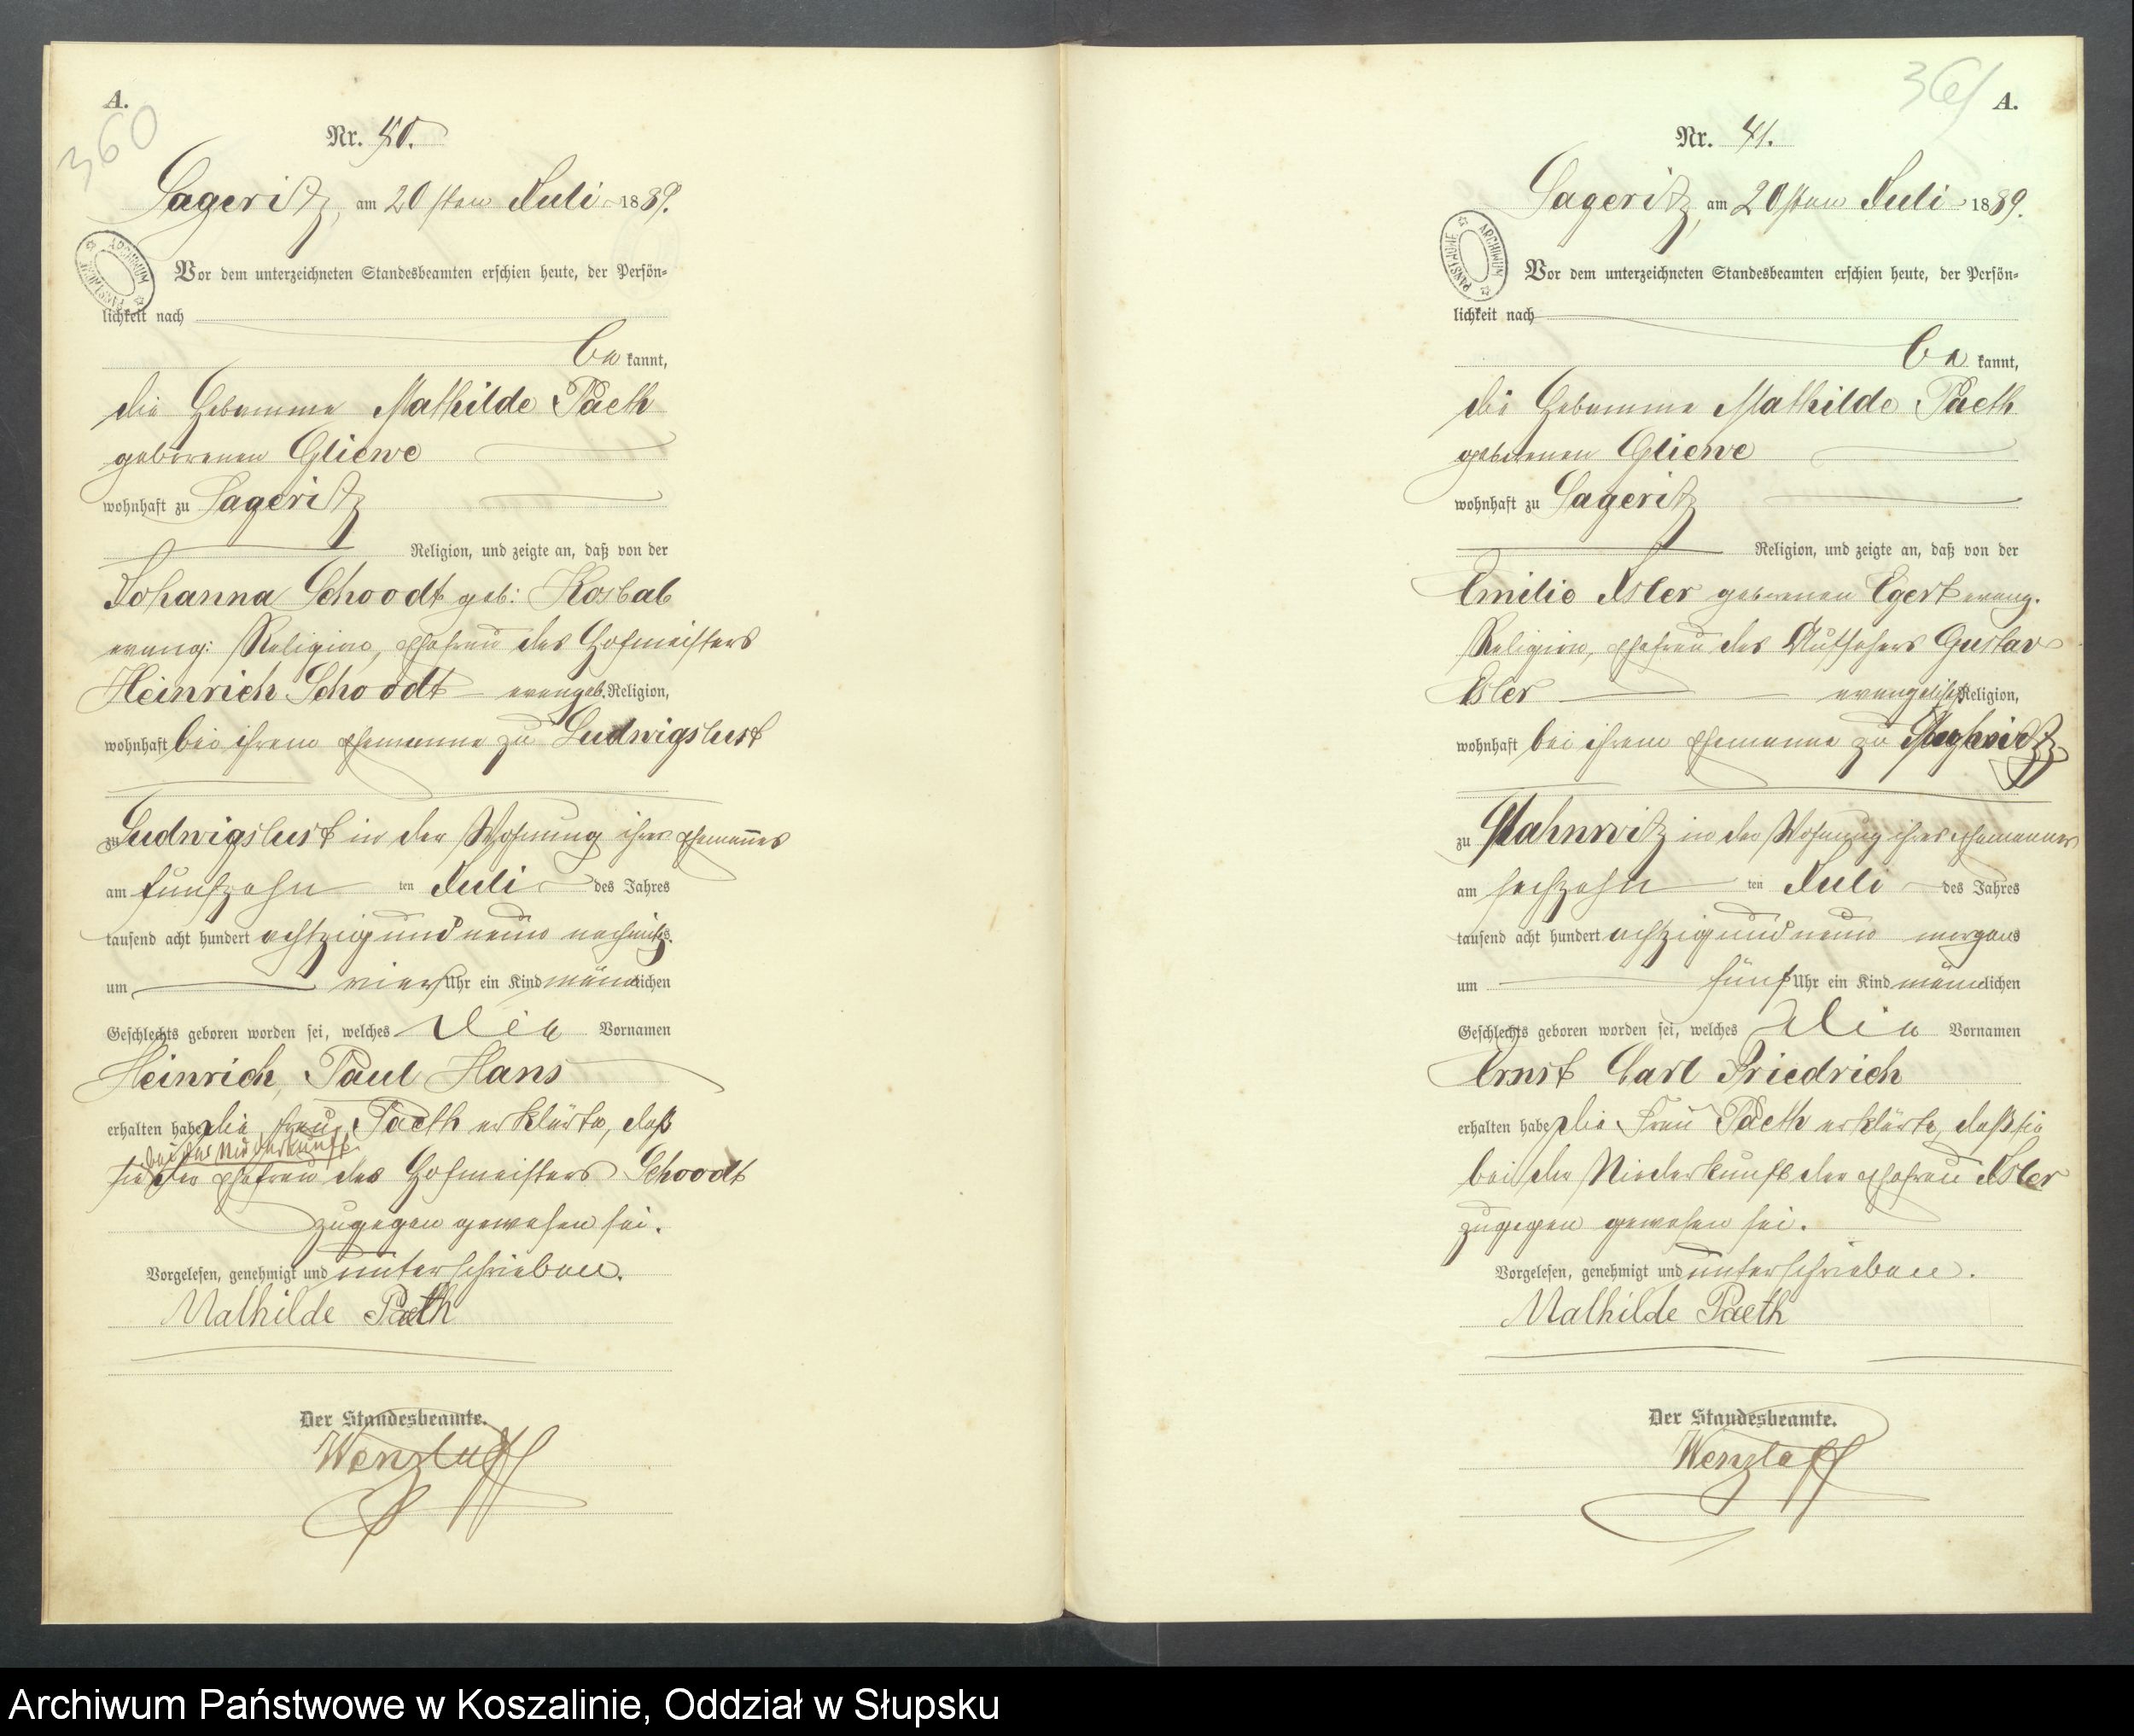 A.
360
Nr. 40.
Sageritz, am 20sten Juli 1889.
ARCHIWUM PAŃSTWOWE
Vor dem unterzeichneten Standesbeamten erschien heute, der Persön-
lichkeit nach
be kannt,
die Hebamme Mathilde Paeth
geborenen Gliewe
wohnhaft zu Sageritz
Religion, und zeigte an, daß von der
Johanna Schoodt geb: Kosbab
evang: Religion, Ehefrau des Hofmeisters
Heinrich Schoodt evangel. Religion,
wohnhaft bei ihrem Ehemanne zu Ludwigslust
zu Ludwigslust in der Wohnung ihres Ehemannes
am fünfzehn ten Juli des Jahres
tausend acht hundert achtzig und neun nachmitgs.
um vier Uhr ein Kind männlichen
Geschlechts geboren worden sei, welches die Vornamen
Heinrich, Paul Hans
erhalten habe, die Frau Paeth erklärte, daß
bei der Niederkunft
sie der Ehefrau des Hofmeisters Schoodt
zugegen gewesen sei.
Vorgelesen, genehmigt und unterschrieben.
Mathilde Paeth
Der Standesbeamte.
Wenzlaff
361
A.
Nr. 41.
Sageritz, am 20sten Juli 1889.
ARCHIWUM PAŃSTWOWE
Vor dem unterzeichneten Standesbeamten erschien heute, der Persön-
lichkeit nach
be kannt,
die Hebamme Mathilde Paeth
geborenen Gliewe
wohnhaft zu Sageritz
Religion, und zeigte an, daß von der
Emilie Isler geborenen Egert evang.
Religion, Ehefrau des Gustav
Isler evangelisch Religion,
wohnhaft bei ihrem Ehemanne zu
zu Stahnwitz in der Wohnung ihres Ehemannes
am sechzehn ten Juli des Jahres
tausend acht hundert achtzig und neun morgens
um fünf Uhr ein Kind männlichen
Geschlechts geboren worden sei, welches die Vornamen
Ernst Carl Friedrich
erhalten habe, die Frau Paeth erklärte, daß sie
bei der Niederkunft der Ehefrau Isler
zugegen gewesen sei.
Vorgelesen, genehmigt und unterschrieben.
Mathilde Paeth
Der Standesbeamte.
Wenzlaff
Archiwum Państwowe w Koszalinie, Oddział w Słupsku